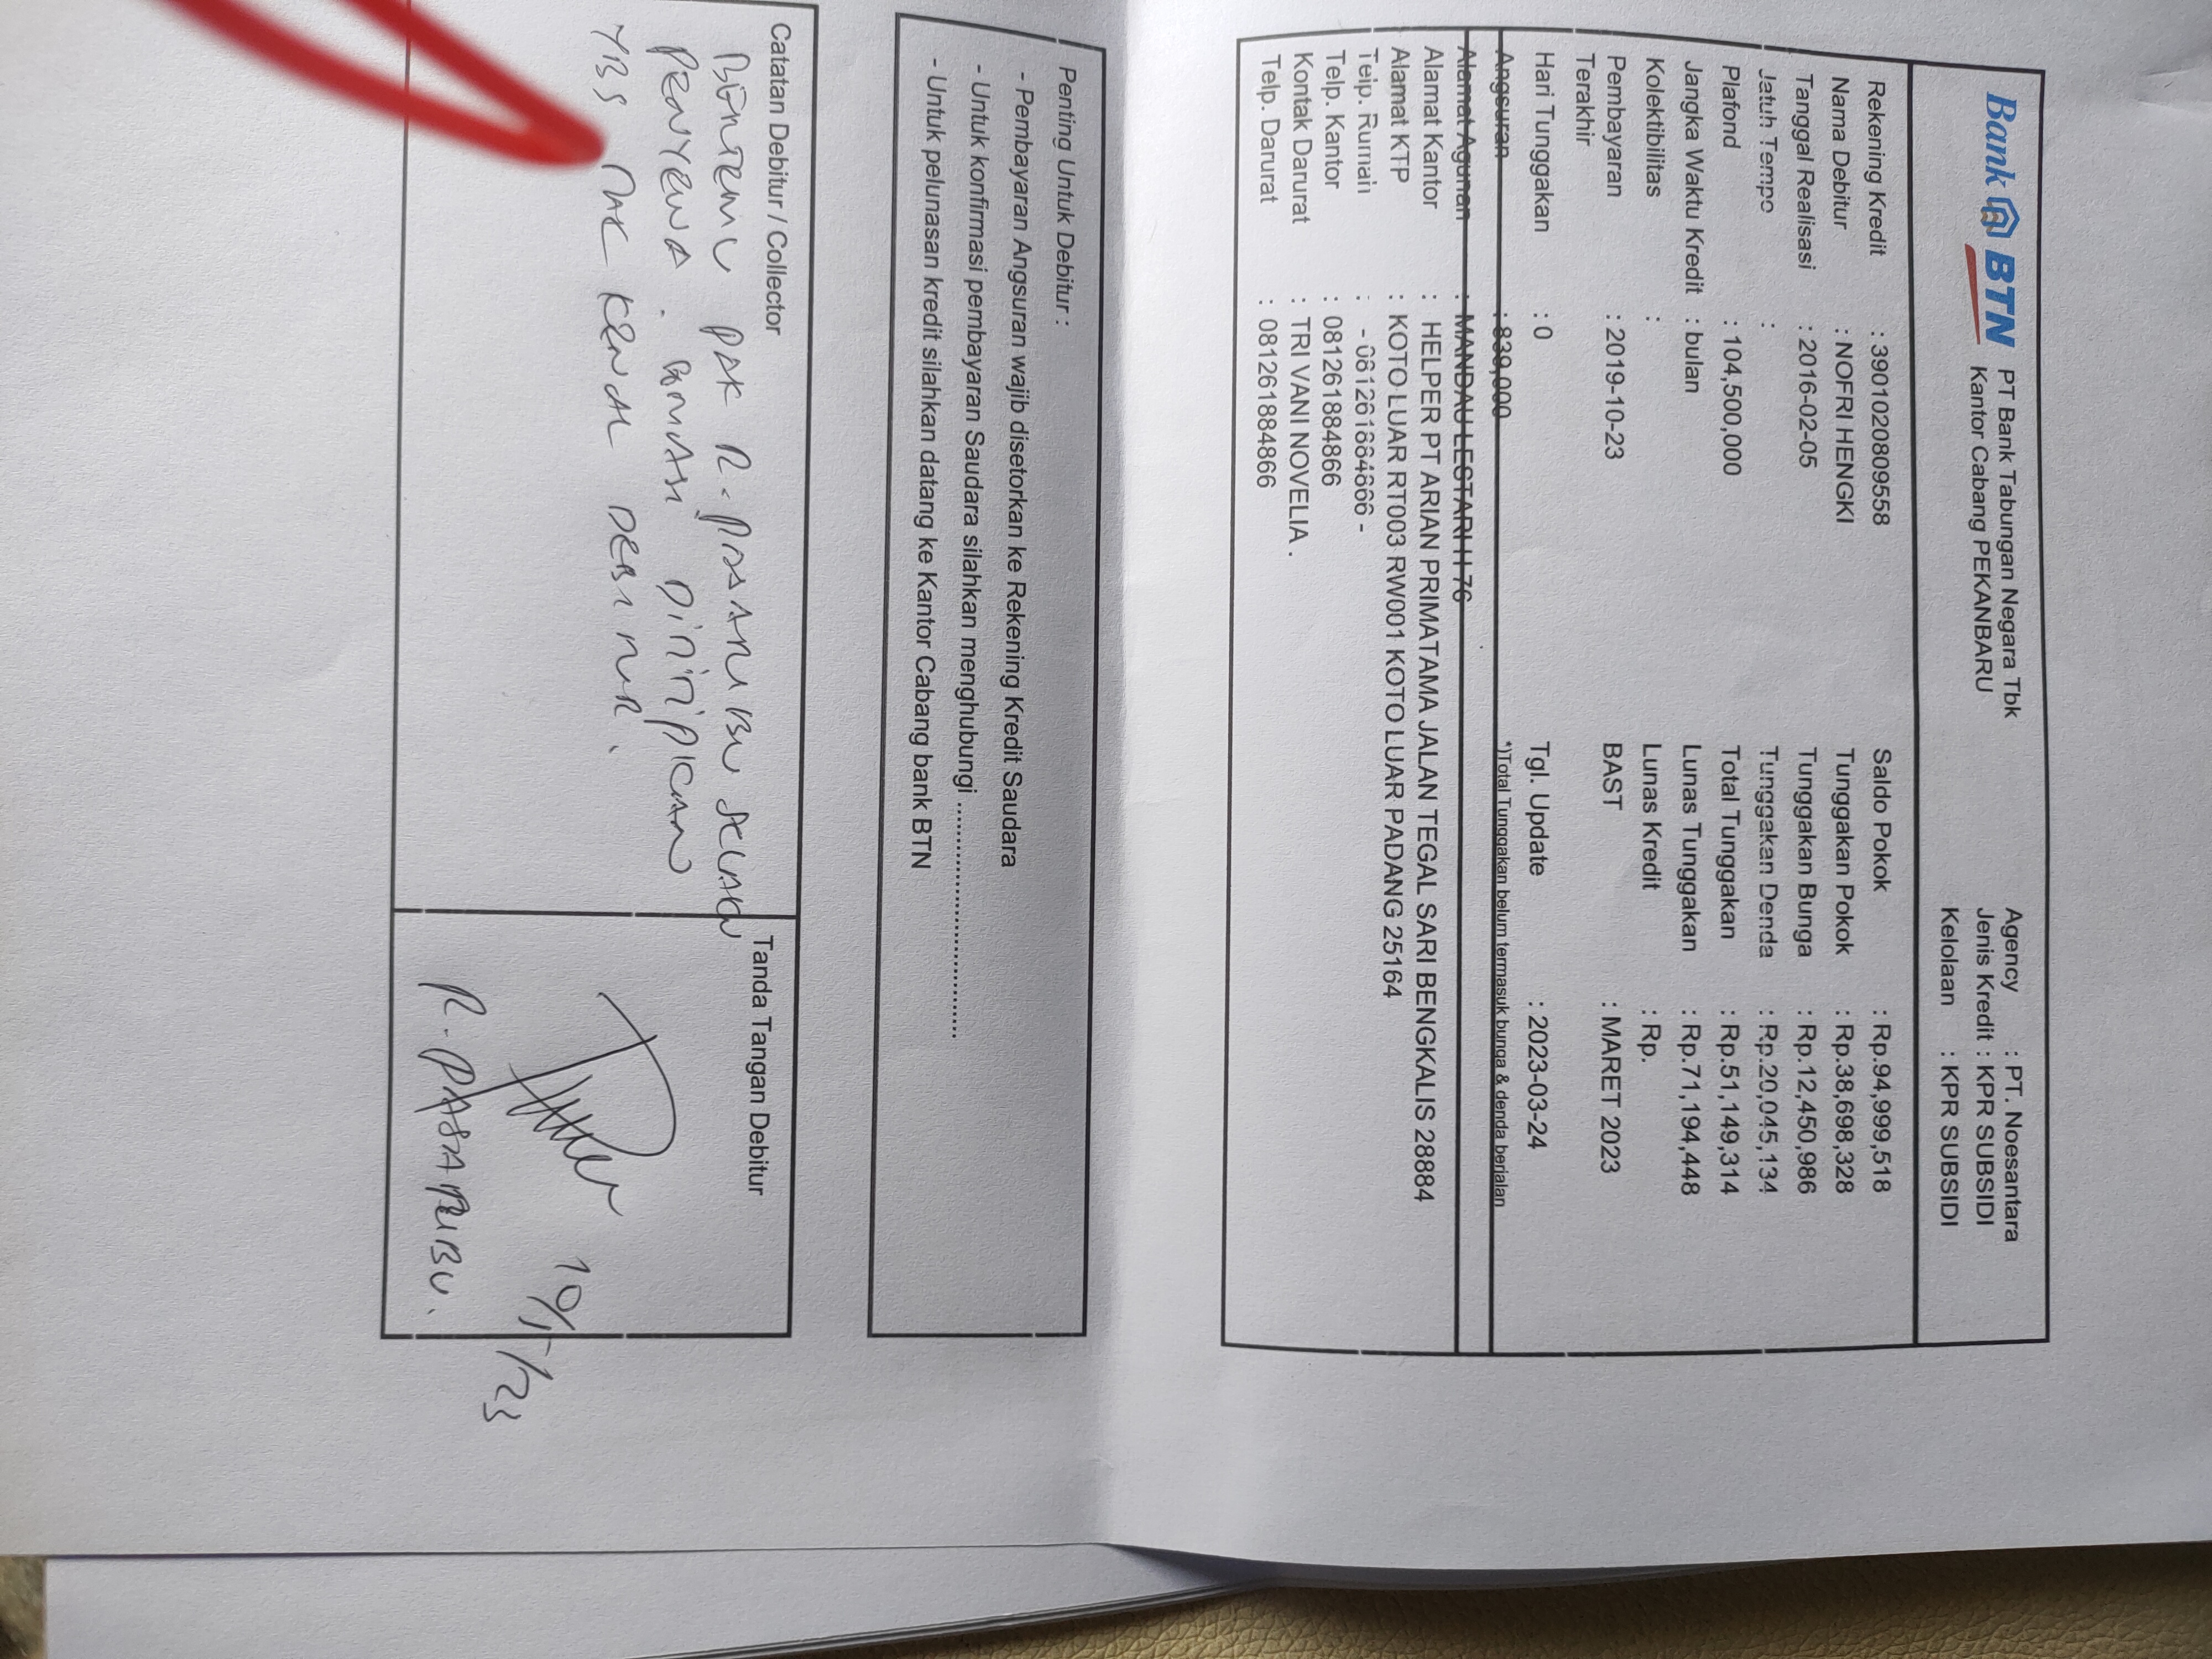 Bank BTN
PT Bank Tabungan Negara Tbk
Kantor Cabang PEKANBARU
Agency : PT. Noesantara
Jenis Kredit : KPR SUBSIDI
Kelolaan : KPR SUBSIDI
Rekening Kredit : 3901020809558
Nama Debitur : NOFRI HENGKI
Tanggal Realisasi : 2016-02-05
Jatuh Tempo :
Plafond : 104,500,000
Jangka Waktu Kredit : bulan
Kolektibilitas :
Pembayaran Terakhir : 2019-10-23
Hari Tunggakan : 0
Angsuran : 839,000
Saldo Pokok : Rp.94,999,518
Tunggakan Pokok : Rp.38,698,328
Tunggakan Bunga : Rp.12,450,986
Tunggakan Denda : Rp.20,045,134
Total Tunggakan : Rp.51,149,314
Lunas Tunggakan : Rp.71,194,448
Lunas Kredit : Rp.
BAST : MARET 2023
Tgl. Update : 2023-03-24
*)Total Tunggakan belum termasuk bunga & denda berjalan
Alamat Agunan : MANDAU LESTARI I I 76
Alamat Kantor : HELPER PT ARIAN PRIMATAMA JALAN TEGAL SARI BENGKALIS 28884
Alamat KTP : KOTO LUAR RT003 RW001 KOTO LUAR PADANG 25164
Telp. Rumah : - 081261884866 -
Telp. Kantor : 081261884866
Kontak Darurat : TRI VANI NOVELIA .
Telp. Darurat : 081261884866
Penting Untuk Debitur :
- Pembayaran Angsuran wajib disetorkan ke Rekening Kredit Saudara
- Untuk konfirmasi pembayaran Saudara silahkan menghubungi ........................................
- Untuk pelunasan kredit silahkan datang ke Kantor Cabang bank BTN
Catatan Debitur / Collector
BERTEMU PAK R. PASARIBU SELAKU
PENYEWA.
YBS TAK KENAL DEBITUR.
Tanda Tangan Debitur
10/5/23
R. PASARIBU.